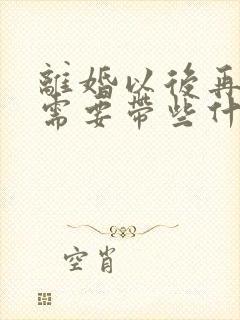 離婚以後再
需要帶些什
空肖